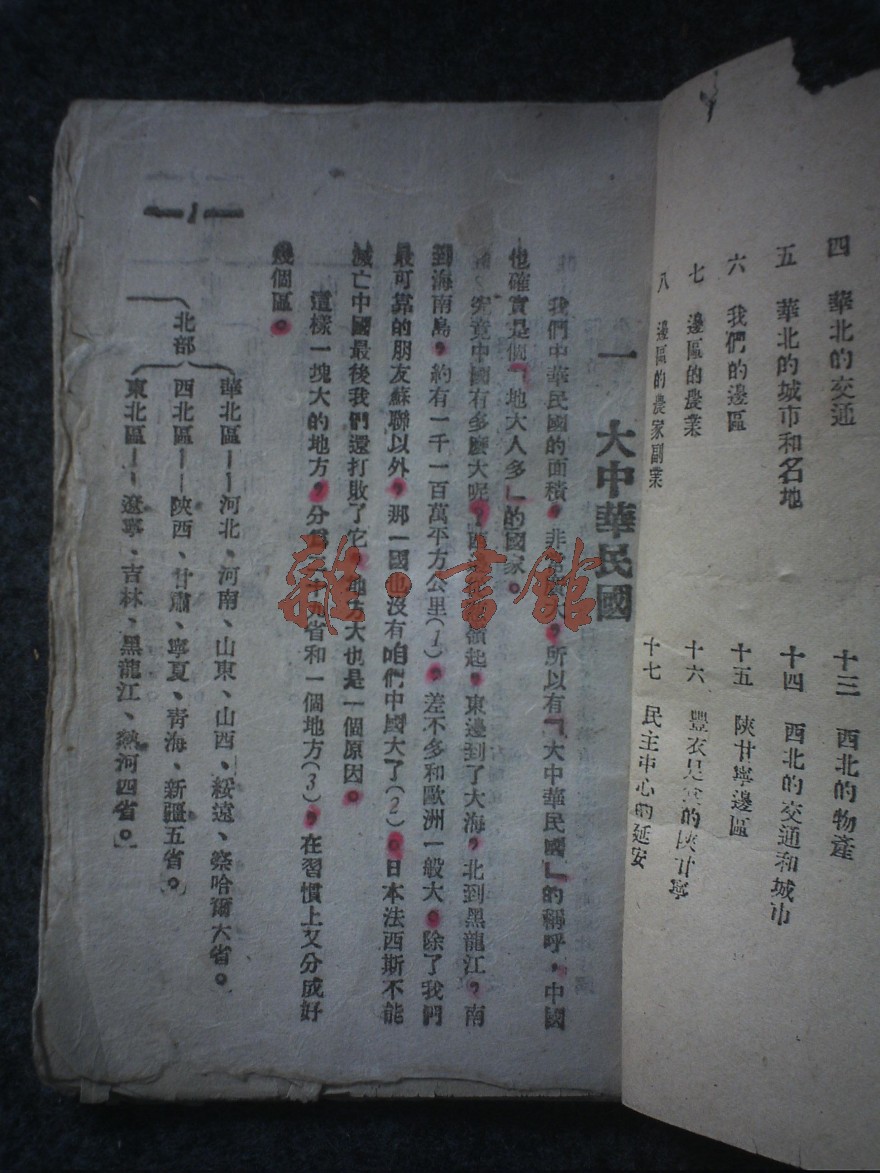 四 華北的交通
五 華北的城市和名地
六 我們的邊區
七 邊區的農業
八 邊區的農家副業
十三 西北的物產
十四 西北的交通和城市
十五 陝甘寧邊區
十六 豐衣足食的陝甘寧
十七 民主中心的延安
一 大中華民國
我們中華民國的面積，非常大，所以有「大中華民國」的稱呼，中國
也確實是個「地大人多」的國家。
究竟中國有多麼大呢，嶺起，東邊到了大海，北到黑龍江，南
到海南島，約有一千一百萬平方公里(1)，差不多和歐洲一般大。除了我們
最可靠的朋友蘇聯以外，那一國也沒有咱們中國大了(2)。日本法西斯不能
滅亡中國最後我們還打敗了它，地方大也是一個原因。
這樣一塊大的地方，分為三十九省和一個地方(3)，在習慣上又分成好
幾個區。
北部
華北區——河北、河南、山東、山西、綏遠、察哈爾六省。
西北區——陝西、甘肅、寧夏、青海、新疆五省。
東北區——遼寧、吉林、黑龍江、熱河四省。
—1—
雜·書館